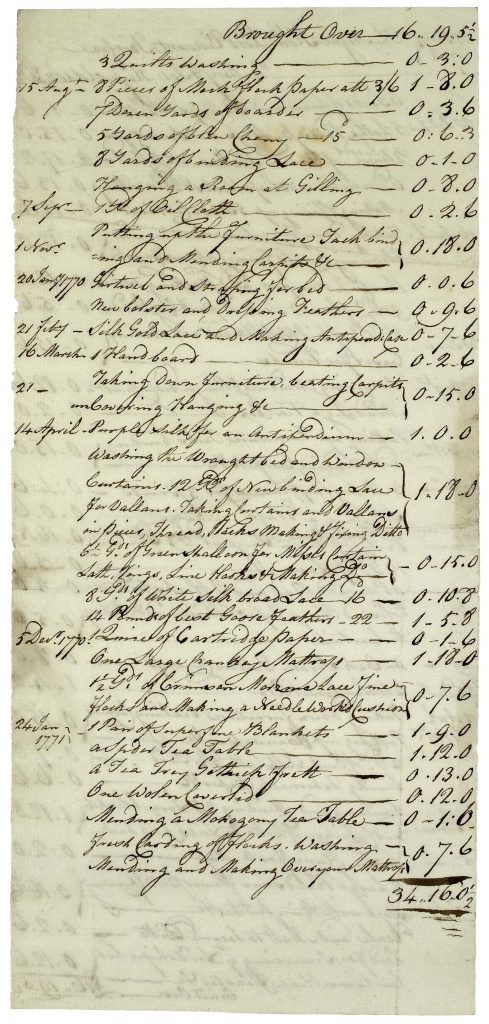 Brought Over — 16.. 19.. 5½
3 Quilts Washing — 0 - 3: 0
15 Augt 8 Pieces of Mock flock Paper att 3/6 1 - 8. 0
7 Dozen Yards of boarder — 0 : 3. 6
5 Yards of blue Cheny — 15d 0: 6. 3
8 Yards of binding Lace — 0 - 1 - 0
Hanging a Room at Gilling — 0 - 8. 0
7 Sepr — of Oil Cloth — 0 . 2. 6
Putting up the Furniture Tack bind
1 Novr ing and Mending Carpits &c — 0. 18. 0
20 Jany 1770 Girtweb and Straping for bed — 0. 0. 6
New bolster and Dressing Feathers — 0 - 9. 6
21 Feby — Silk Gold Lace and Making Antipendi Case 0 - 7 - 6
16 March - 1 Hand board — 0 - 2. 6
Taking Down Furniture, beating Carpits
21 — un Covering Hanging &c — 0 - 15. 0
14 April - Purple Silk for an Antipendium — 1. 0. 0
Washing the Wrought bed and Window
Curtains. 12 Yds of New binding Lace
for Vallans. Taking Curtains and Vallans
in Pieces, Thread, Hooks Making & fixing Ditto 1 - 18 - 0
6½ Yds of Green Shalloon for Curtain
Lath, Rings, Line Hooks & Making Do — 0 - 15. 0
8 Yds of White Silk broad Lace — 16d — 0. 10. 8
14 Pound of best Goose Feathers - 22 — 1 - 5. 8
5 Decr 1770 1 Quire of Cartridge Paper — 0 - 1 - 6
One Large Mattrass — 1 - 18 - 0
1½ Yds of Crimson Lace fine
flocks and Making a Needle Work'd Cushion 0 - 7. 6
24 Jan 1771 - 1 Pair of Superfine Blankets — 1 - 9. 0
a Spider Tea Table — 1. 12. 0
a Tea Trey Gothick frett — 0. 13. 0
One Wolen Coverled — 0. 12. 0
Mending a Mahogony Tea Table — 0 - 1: 6
fresh Carding of flocks. Washing
Mending and Making Over your Mattrass 0. 7. 6
34.. 16. 0½